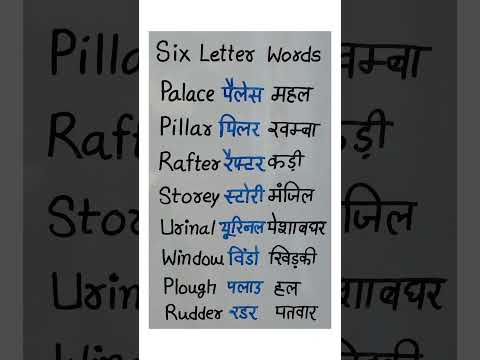 Six Letter Words
Palace पैलेस महल
Pillar पिलर खम्बा
Rafter रैफ्टर कड़ी
Storey स्टोरी मंजिल
Urinal यूरिनल पेशाबघर
Window विंडो खिड़की
Plough पलाउ हल
Rudder रडर पतवार